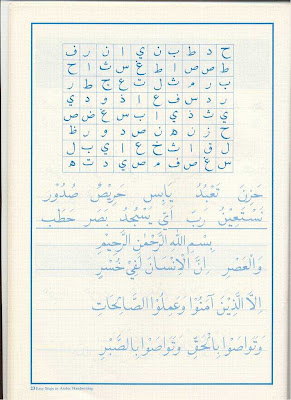 ح د ط ب ن ي ا ن ر ف
ط ص ص ا ط غ س ث ا ح
ب ر م ث ل ت ع ج ط ر
ر د س ف ع ا ذ و د ي
ي ث ذ ي ا ب س غ ض ص
ح ز ن ه ن ص د و ر ظ
ل ق ا ث خ ع ا ي ب ل
س غ ص ف م ص ي د ت ه
حَزِنَ تَعْبُدُ يَابِس حَرِيْصٌ صُدُوْر
نَسْتَعِيْنُ رُبَ أَتَى يَسْجُدُ بَصَر حَطَب
بِسْمِ اللهِ الرَّحْمٰنِ الرَّحِيْمِ
وَالْعَصْرِ اِنَّ الْاِنْسَانَ لَفِيْ خُسْرٍ
اِلَّا الَّذِيْنَ آمَنُوْا وَعَمِلُوا الصَّالِحَاتِ
وَتَوَاصَوْا بِالْحَقِّ وَتَوَاصَوْا بِالصَّبْرِ
23 Easy Steps in Arabic Handwriting